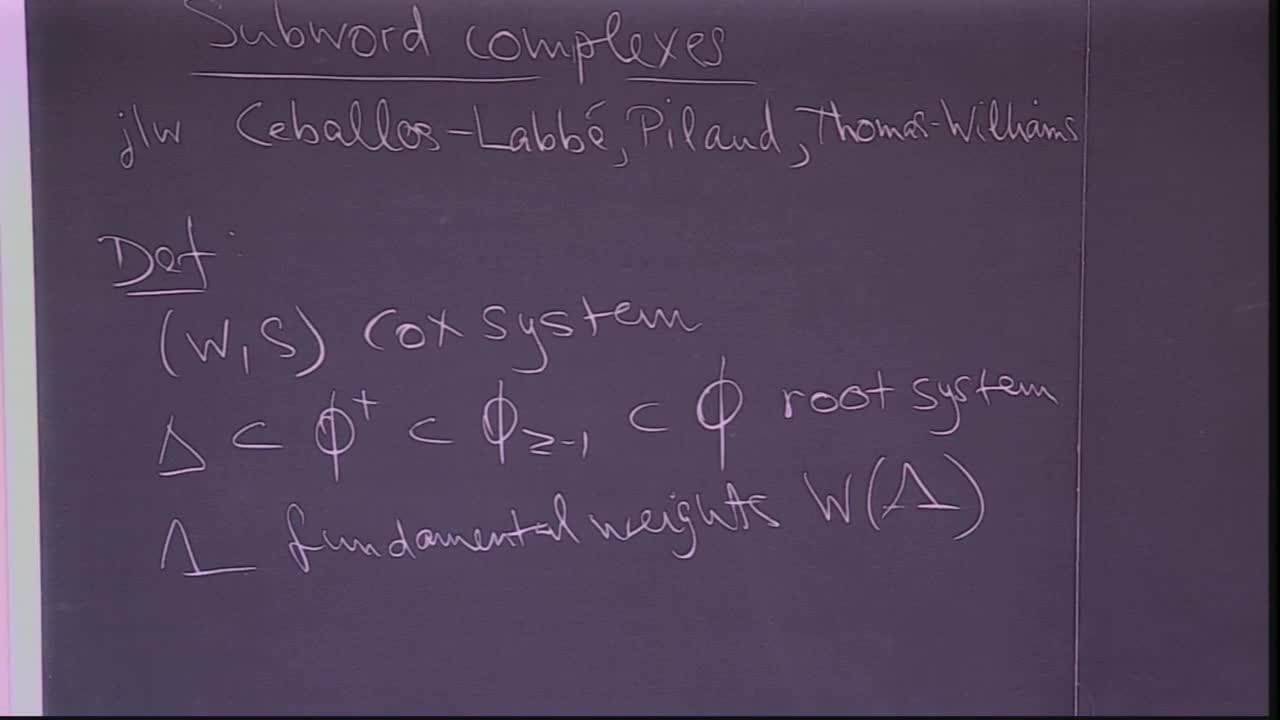 Subword complexes
j/w Ceballos-Labbé, Pilaud, Thomas-Williams
Def:
(W, S) Cox system
Δ ⊂ Φ⁺ ⊂ Φ≥-1 ⊂ Φ root system
Λ fundamental weights W(Λ)